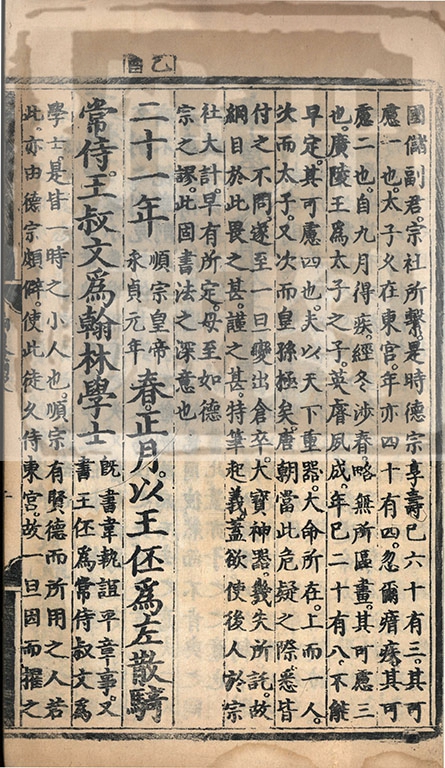 乙酉
國儲副君宗社所繫是時德宗享壽巳六十有三其可
慮一也太子久在東宮年亦四十有四忽爾瘖疾其可
慮二也自九月得疾經冬涉春略無所區畫其可慮三
也廣陵王爲太子之子英睿夙成年巳二十有八不能
早定其可慮四也夫以天下重器大命所在上而一人
次而太子又次而皇孫極矣唐朝當此危疑之際悉皆
付之不問遂至一旦變出倉卒大寶神器幾失所託故
綱目於此畏之甚謹之甚特筆起義蓋欲使後人於宗
社大計早有所定毋至如德
宗之謬此固書法之深意也
二十一年
順宗皇帝
永貞元年
春正月以王伾爲左散騎
常侍王叔文爲翰林學士
旣書韋執誼平章事又
書王伾爲常侍叔文爲
學士是皆一時之小人也順宗有賢德而所用之人若
此亦由德宗頗僻使此徒久侍東宮故一旦因而擢之